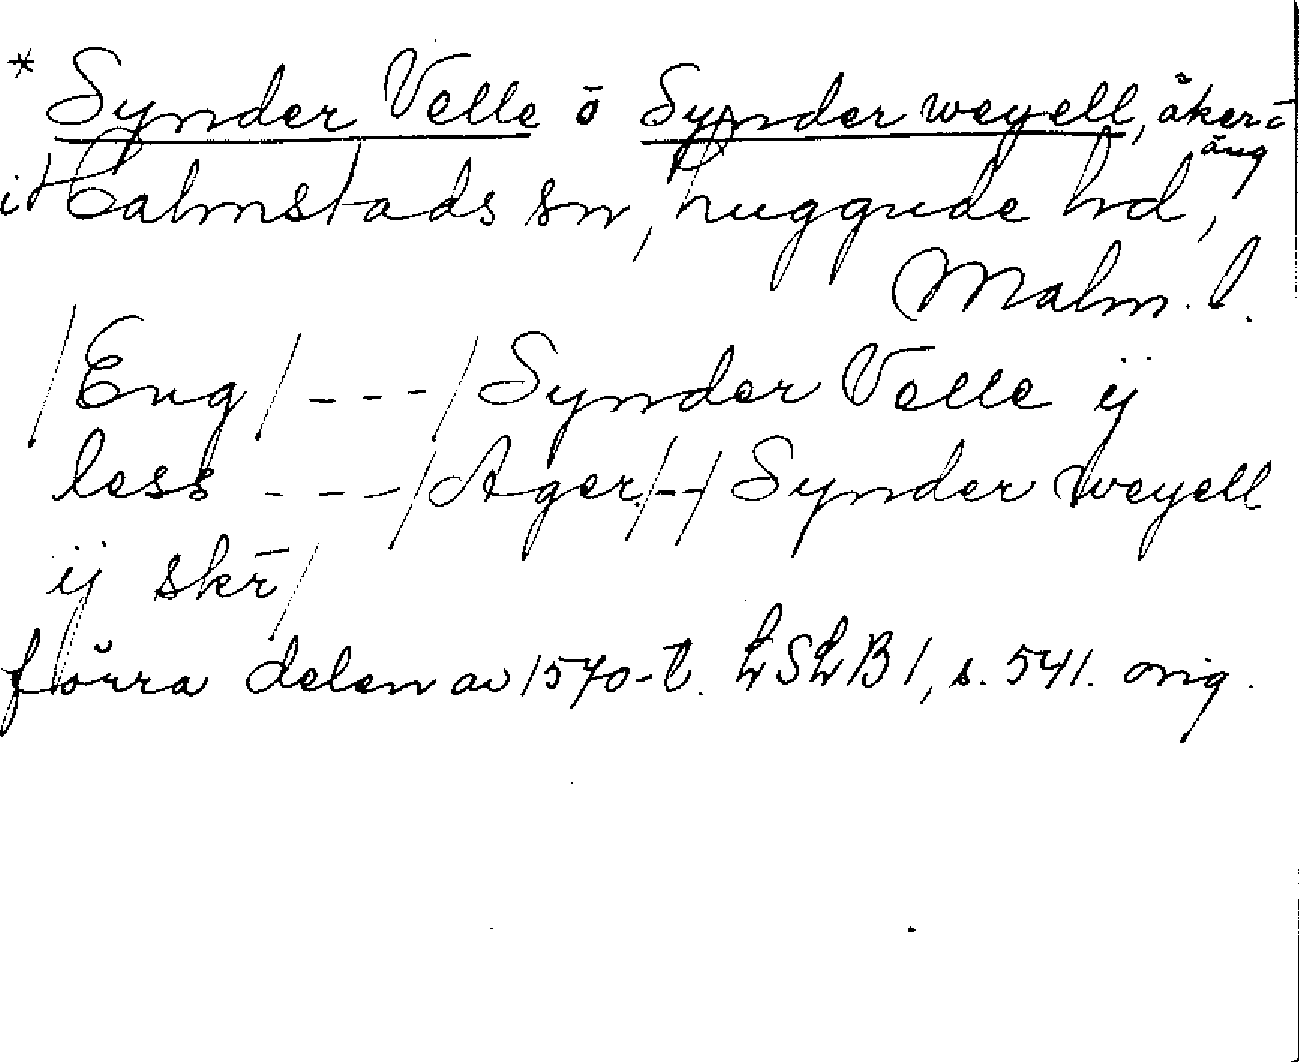 * Synder Velle ö Synder weyell, åker- ō
äng
i Halmstads sn, Luggude hd,
Malm. l.
/Eng/ --- /Synder Velle ij
less --- /Ager/--/ Synder weyell
ij skr̄/
förra delen av 1570-t. LSLB 1, s. 541. orig.